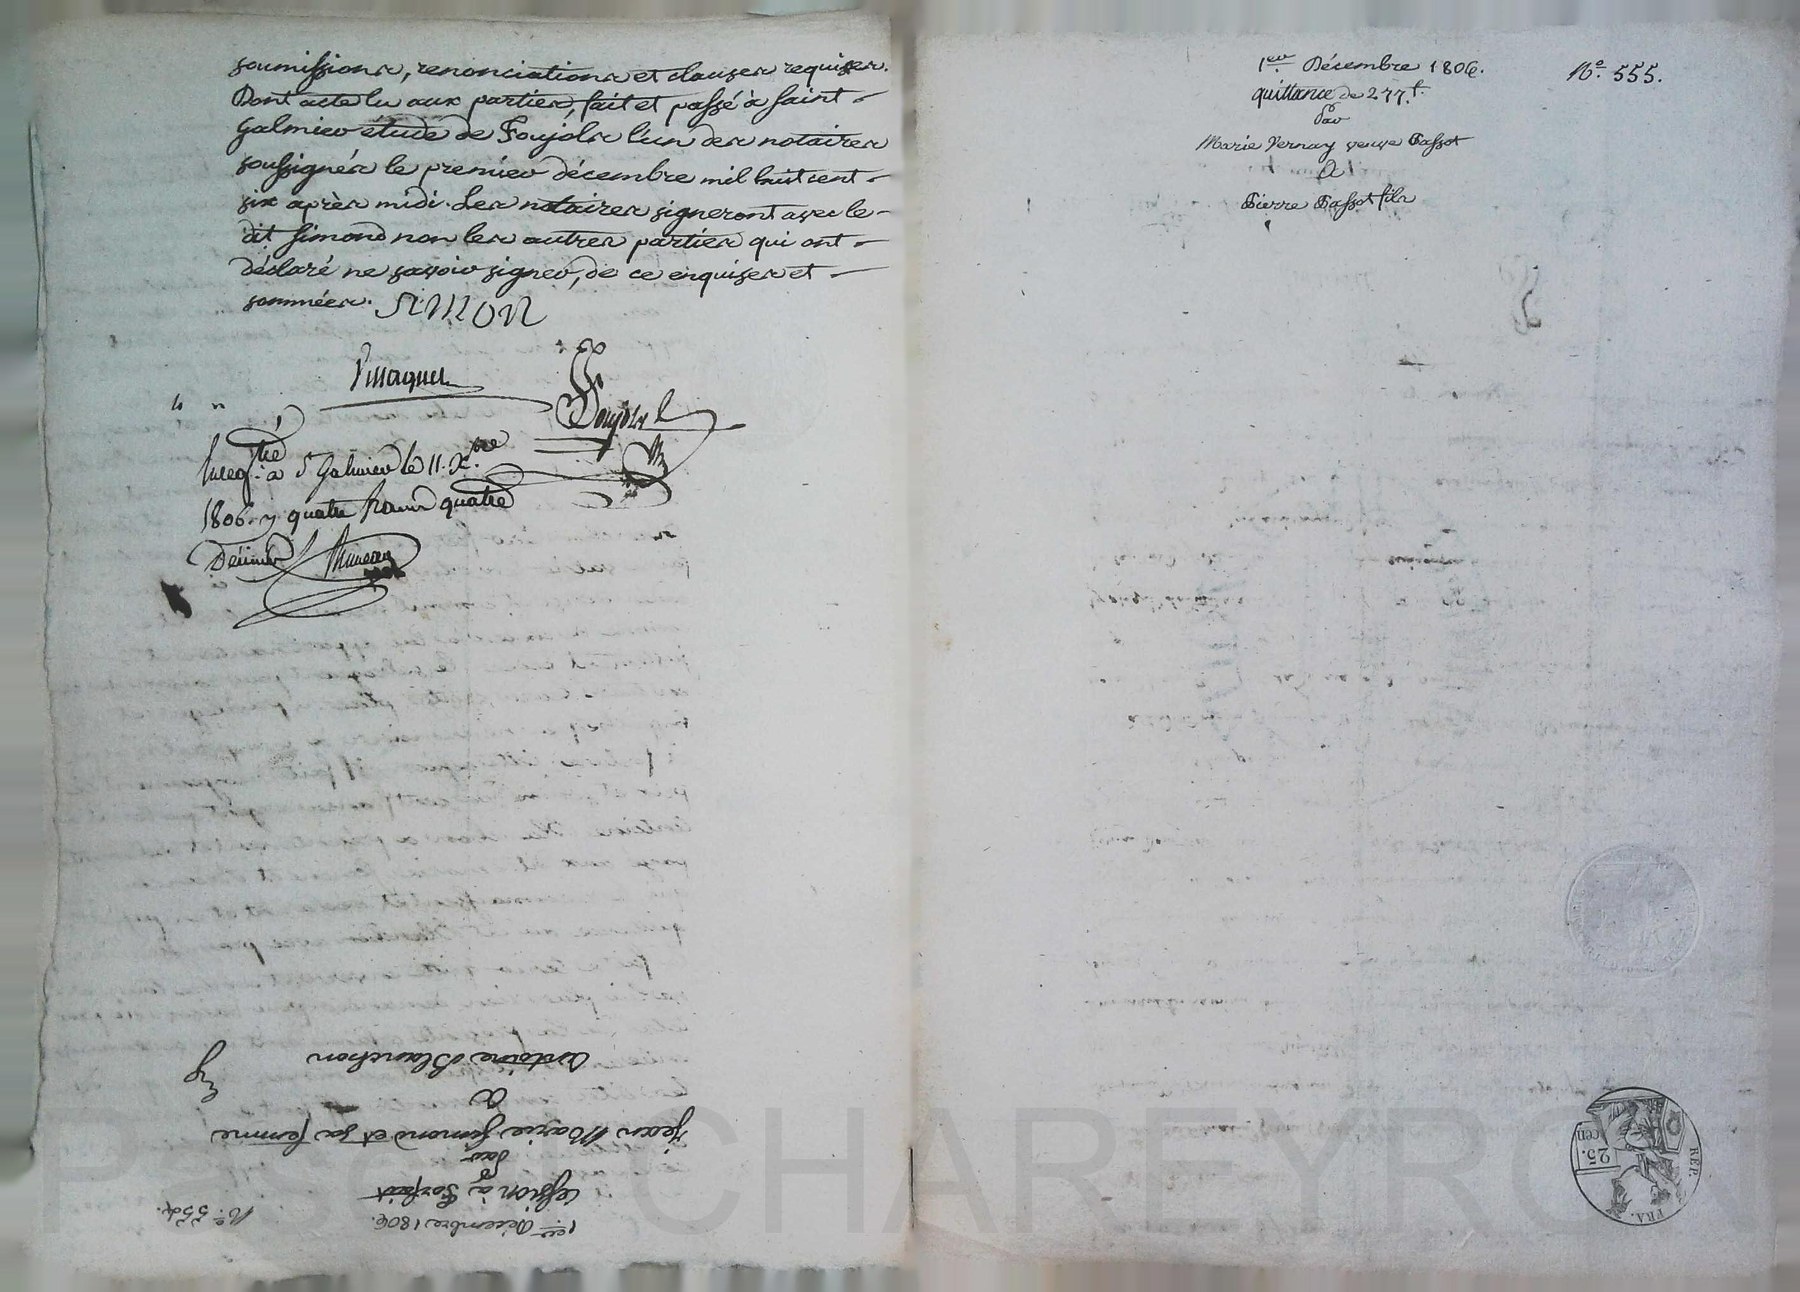 soumissions, renonciations et clauses requises.
Dont acte lu aux parties, fait et passé à Saint
Galmier étude de Foujols l'un des notaires
soussignés le premier décembre mil huit cent
six après midi. Les notaires signeront avec le
dit Simond non les autres parties qui ont
déclaré ne savoir signer, de ce enquises et
sommées. SIMON
Foujols
Enregtré à St Galmier le 11. Xbre
1806. y quatre francs quatre
Décimes
1er Décembre 1806.
N° 554.
Cession à Forfait
Par
Jean Marie Simond et sa femme
A
Antoine Blanchon
1er Décembre 1806.
N° 555.
quittance de 277.f.
Par
Marie Vernay veuve Passot
A
Pierre Passot fils
25.
cen
REP.
FRA.
PASCAL CHAREYRON